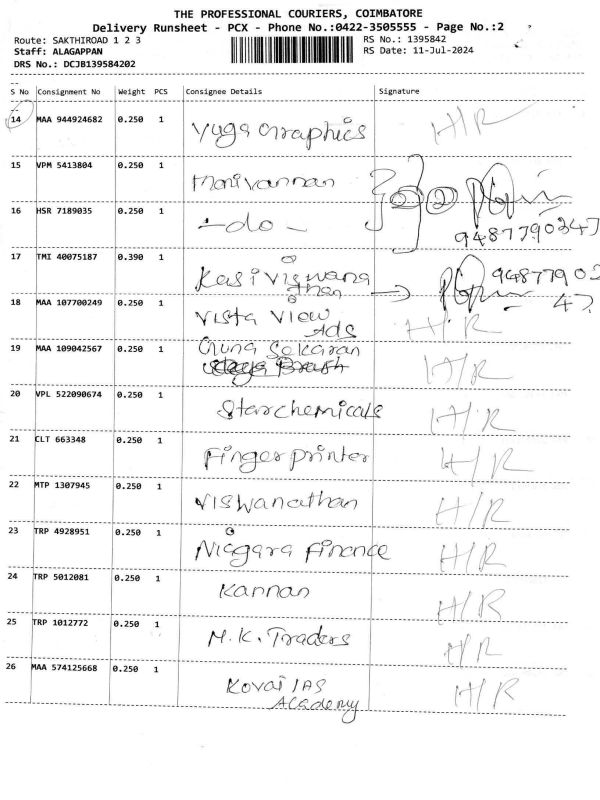 THE PROFESSIONAL COURIERS, COIMBATORE
Delivery Runsheet - PCX - Phone No.:0422-3505555 - Page No.:2
Route: SAKTHIROAD 1 2 3 RS No.: 1395842
Staff: ALAGAPPAN RS Date: 11-Jul-2024
DRS No.: DCJB139584202
S No Consignment No Weight PCS Consignee Details Signature
14 MAA 944924682 0.250 1 Yuga Graphics H/R
15 VPM 5413804 0.250 1 Manivannan
16 HSR 7189035 0.250 1 - do -
9487790347
17 TMI 40075187 0.390 1 Kasi Viswana
than
18 MAA 107700249 0.250 1 Vista View H/R
Ads
19 MAA 109042567 0.250 1 Guna Sekaran H/R
20 VPL 522090674 0.250 1 Starchemicals H/R
21 CLT 663348 0.250 1 Fingerprinter H/R
22 MTP 1307945 0.250 1 Viswanathan H/R
23 TRP 4928951 0.250 1 Niagara Finance H/R
24 TRP 5012081 0.250 1 Kannan H/R
25 TRP 1012772 0.250 1 M.K. Traders H/R
26 MAA 574125668 0.250 1 Kovai IAS H/R
Academy